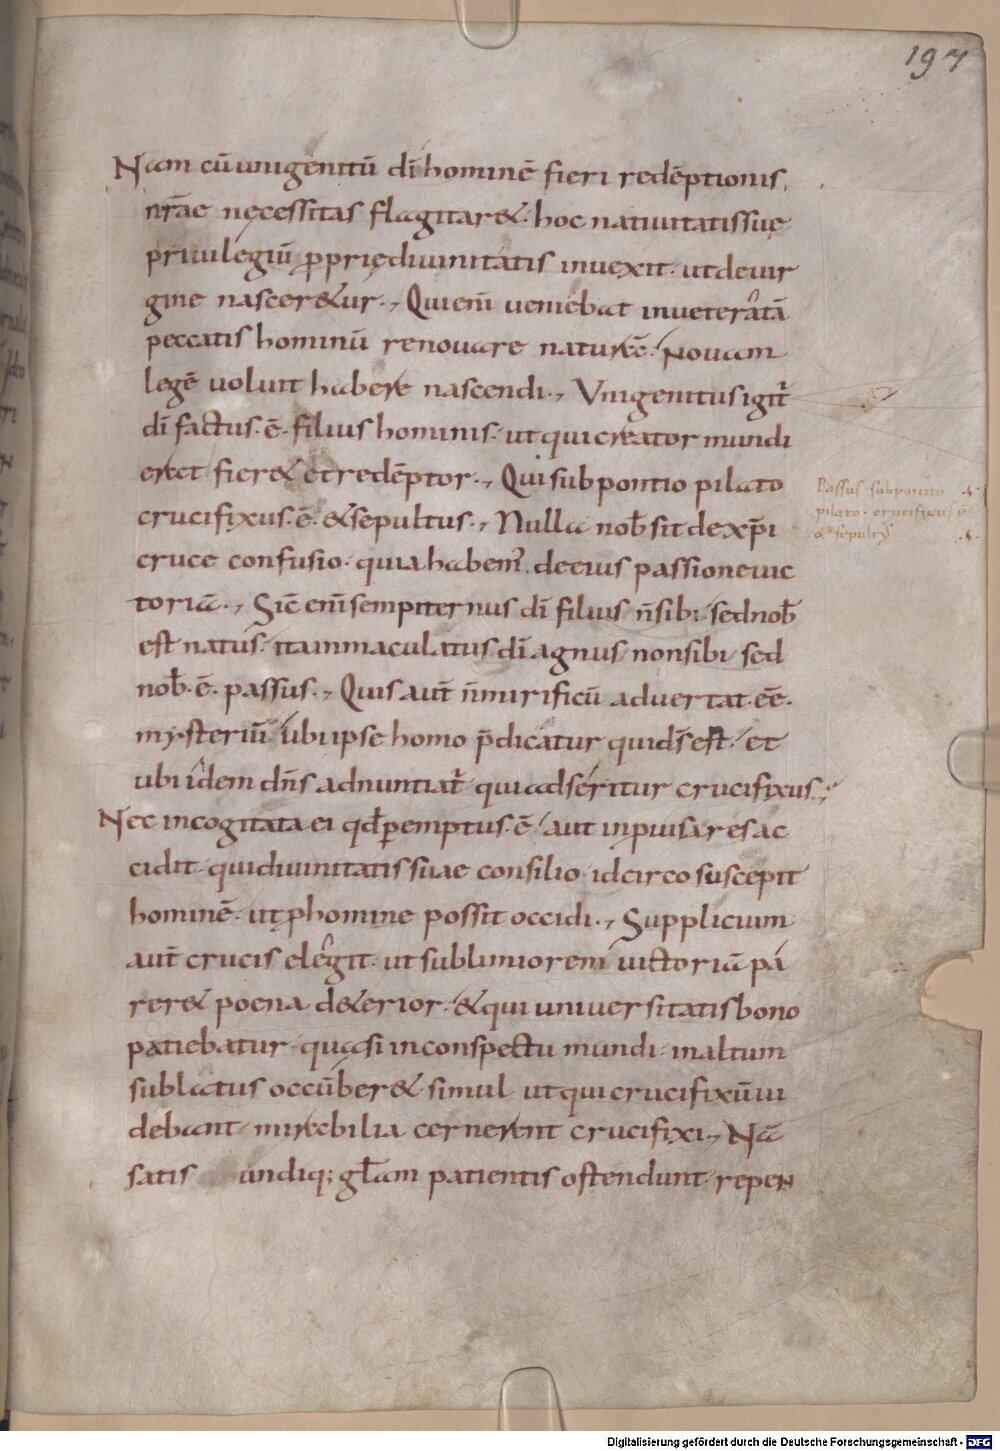 197
Nam cū unigenitū dī hominē fieri redēptionis
nr̄ae nęcessitas flagitar&. hoc natiuitatis suę
priuilegiū ꝓprię diuinitatis inuexit. ut de uir
gine nascer&ur., Qui enī ueniebat inueteratā
peccatis hominū renouare naturā. Nouam
legē uoluit habere nascendi., Unigenitus igit̄
dī factus. ē. filius hominis. ut qui creator mundi
erat fier& et redēptor., Qui sub pontio pilato
crucifixus. ē. & sepultus., Nulla nob̄ sit de xp̄i
cruce confusio. quia habem᾽. de eius passione uic
toriā., Sic enī sempiternus dī filius n̄ sibi sed nob̄
est natus. ita inmaculatus dī agnus non sibi sed
nob̄. ē. passus., Quis aut̄ n̄ mirificū aduertat. eē.
mysteriū ubi ipse homo p̄dicatur quid s̄ est. et
ubi idem dn̄s adnuntiat̄ qui adseritur crucifixus.,
Nec incogitata ei qd̄ ꝑemptus. ē. aut inprouisa res ac
cidit. qui diuinitatis suae consilio idcirco suscepit
hominē. ut ꝑ hominę possit occidi., Supplicium
aut̄ crucis elegit. ut sublimiorem uictoriā pa
rer& poena d&erior. & qui uniuersitatis bono
patiebatur. quasi in conspectu mundi. in altum
sublatus occūber& simul ut qui crucifixū ui
debant. mirabilia cernerent crucifixi., Nā
satis undiq; gl̄am patientis ostendunt. repen
Passus sub pontio
pilato. crucifixus ē
& sepultus
Digitalisierung gefördert durch die Deutsche Forschungsgemeinschaft - DFG